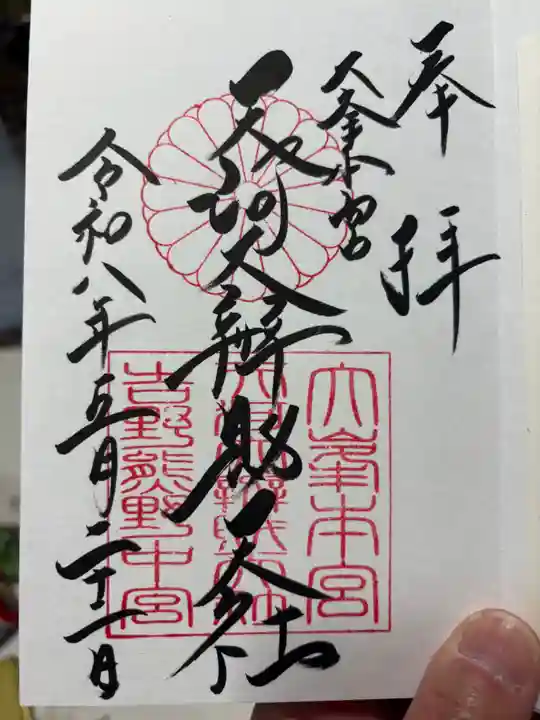 奉拝
大峯本宮
天河大辨財天社
令和八年五月二十二日
大峯本宮
天河大辨財天社
吉野熊野中宮